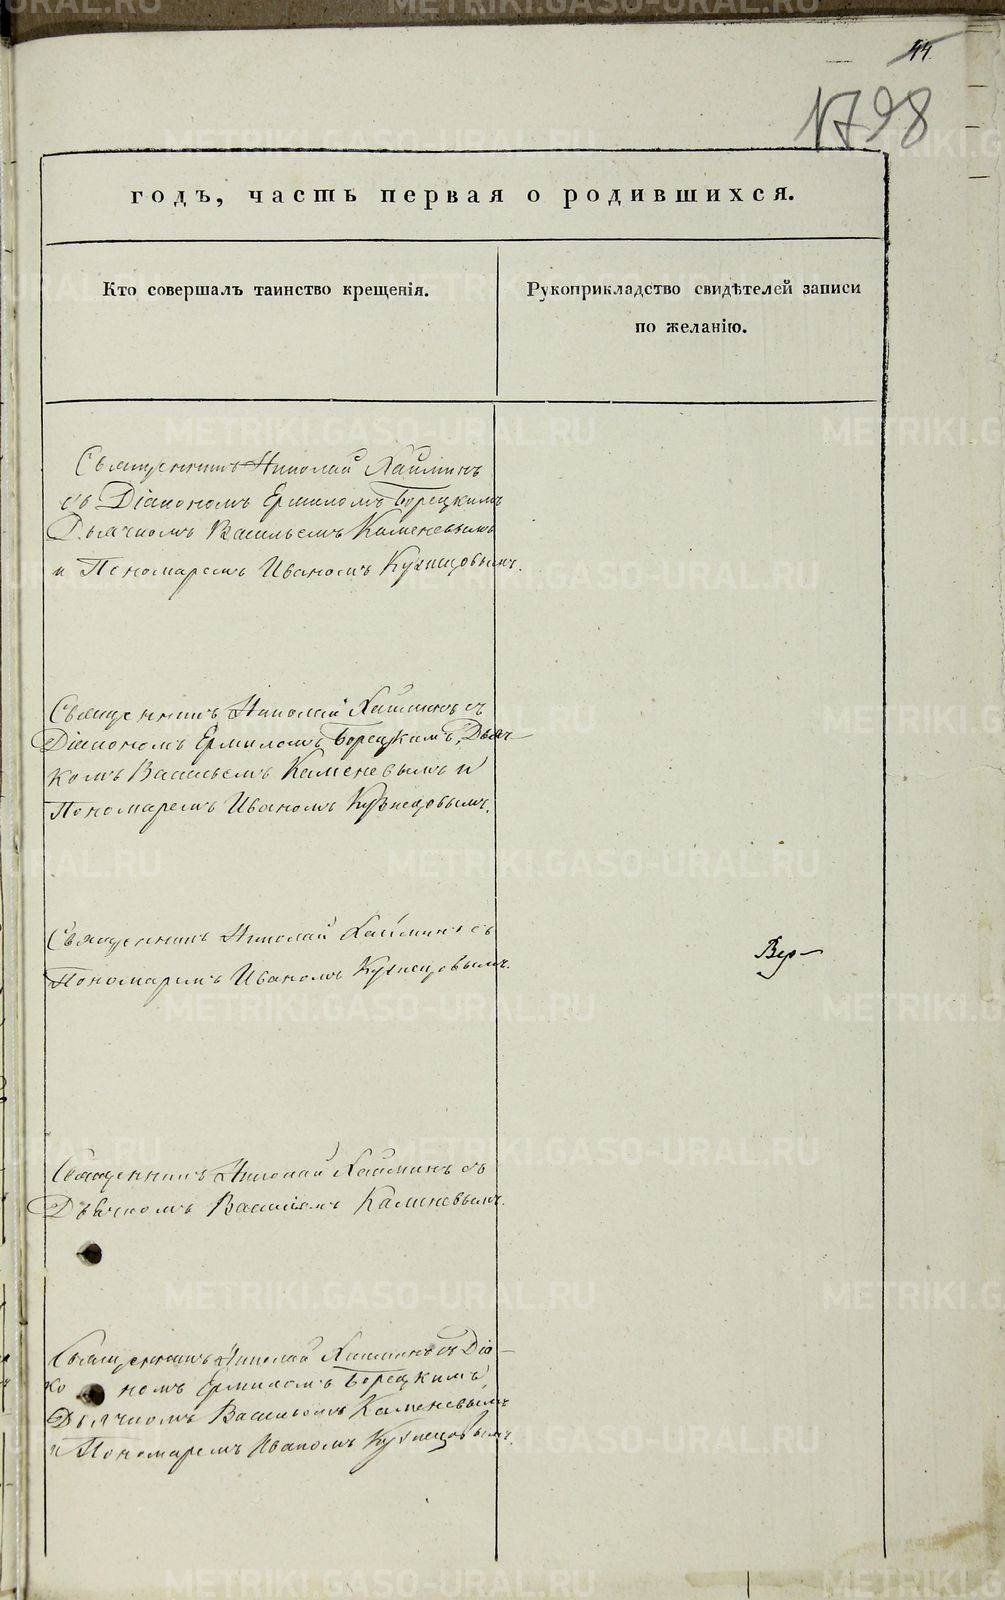 44
1798
годъ, часть первая о родившихся.
Кто совершалъ таинство крещенія.
Рукоприкладство свидѣтелей записи
по желанію.
Священникъ Николай Хайминъ
съ Діакономъ Ермиломъ Борецкимъ
Дьячкомъ Васильемъ Каменевымъ
и Пономаремъ Иваномъ Кузнецовымъ.
Священникъ Николай Хайминъ съ
Діакономъ Ермиломъ Борецкимъ, Дьяч-
комъ Васильемъ Каменевымъ и
Пономаремъ Иваномъ Кузнецовымъ.
Священникъ Николай Хайминъ съ
Пономаремъ Иваномъ Кузнецовымъ.
Вер-
Священникъ Николай Хайминъ съ
Дьячкомъ Василіемъ Каменевымъ.
Священникъ Николай Хайминъ съ Діа-
ко номъ Ермиломъ Борецкимъ,
Дьячкомъ Васильемъ Каменевымъ
и Пономаремъ Иваномъ Кузнецовымъ.
METRIKI.GASO-URAL.RU